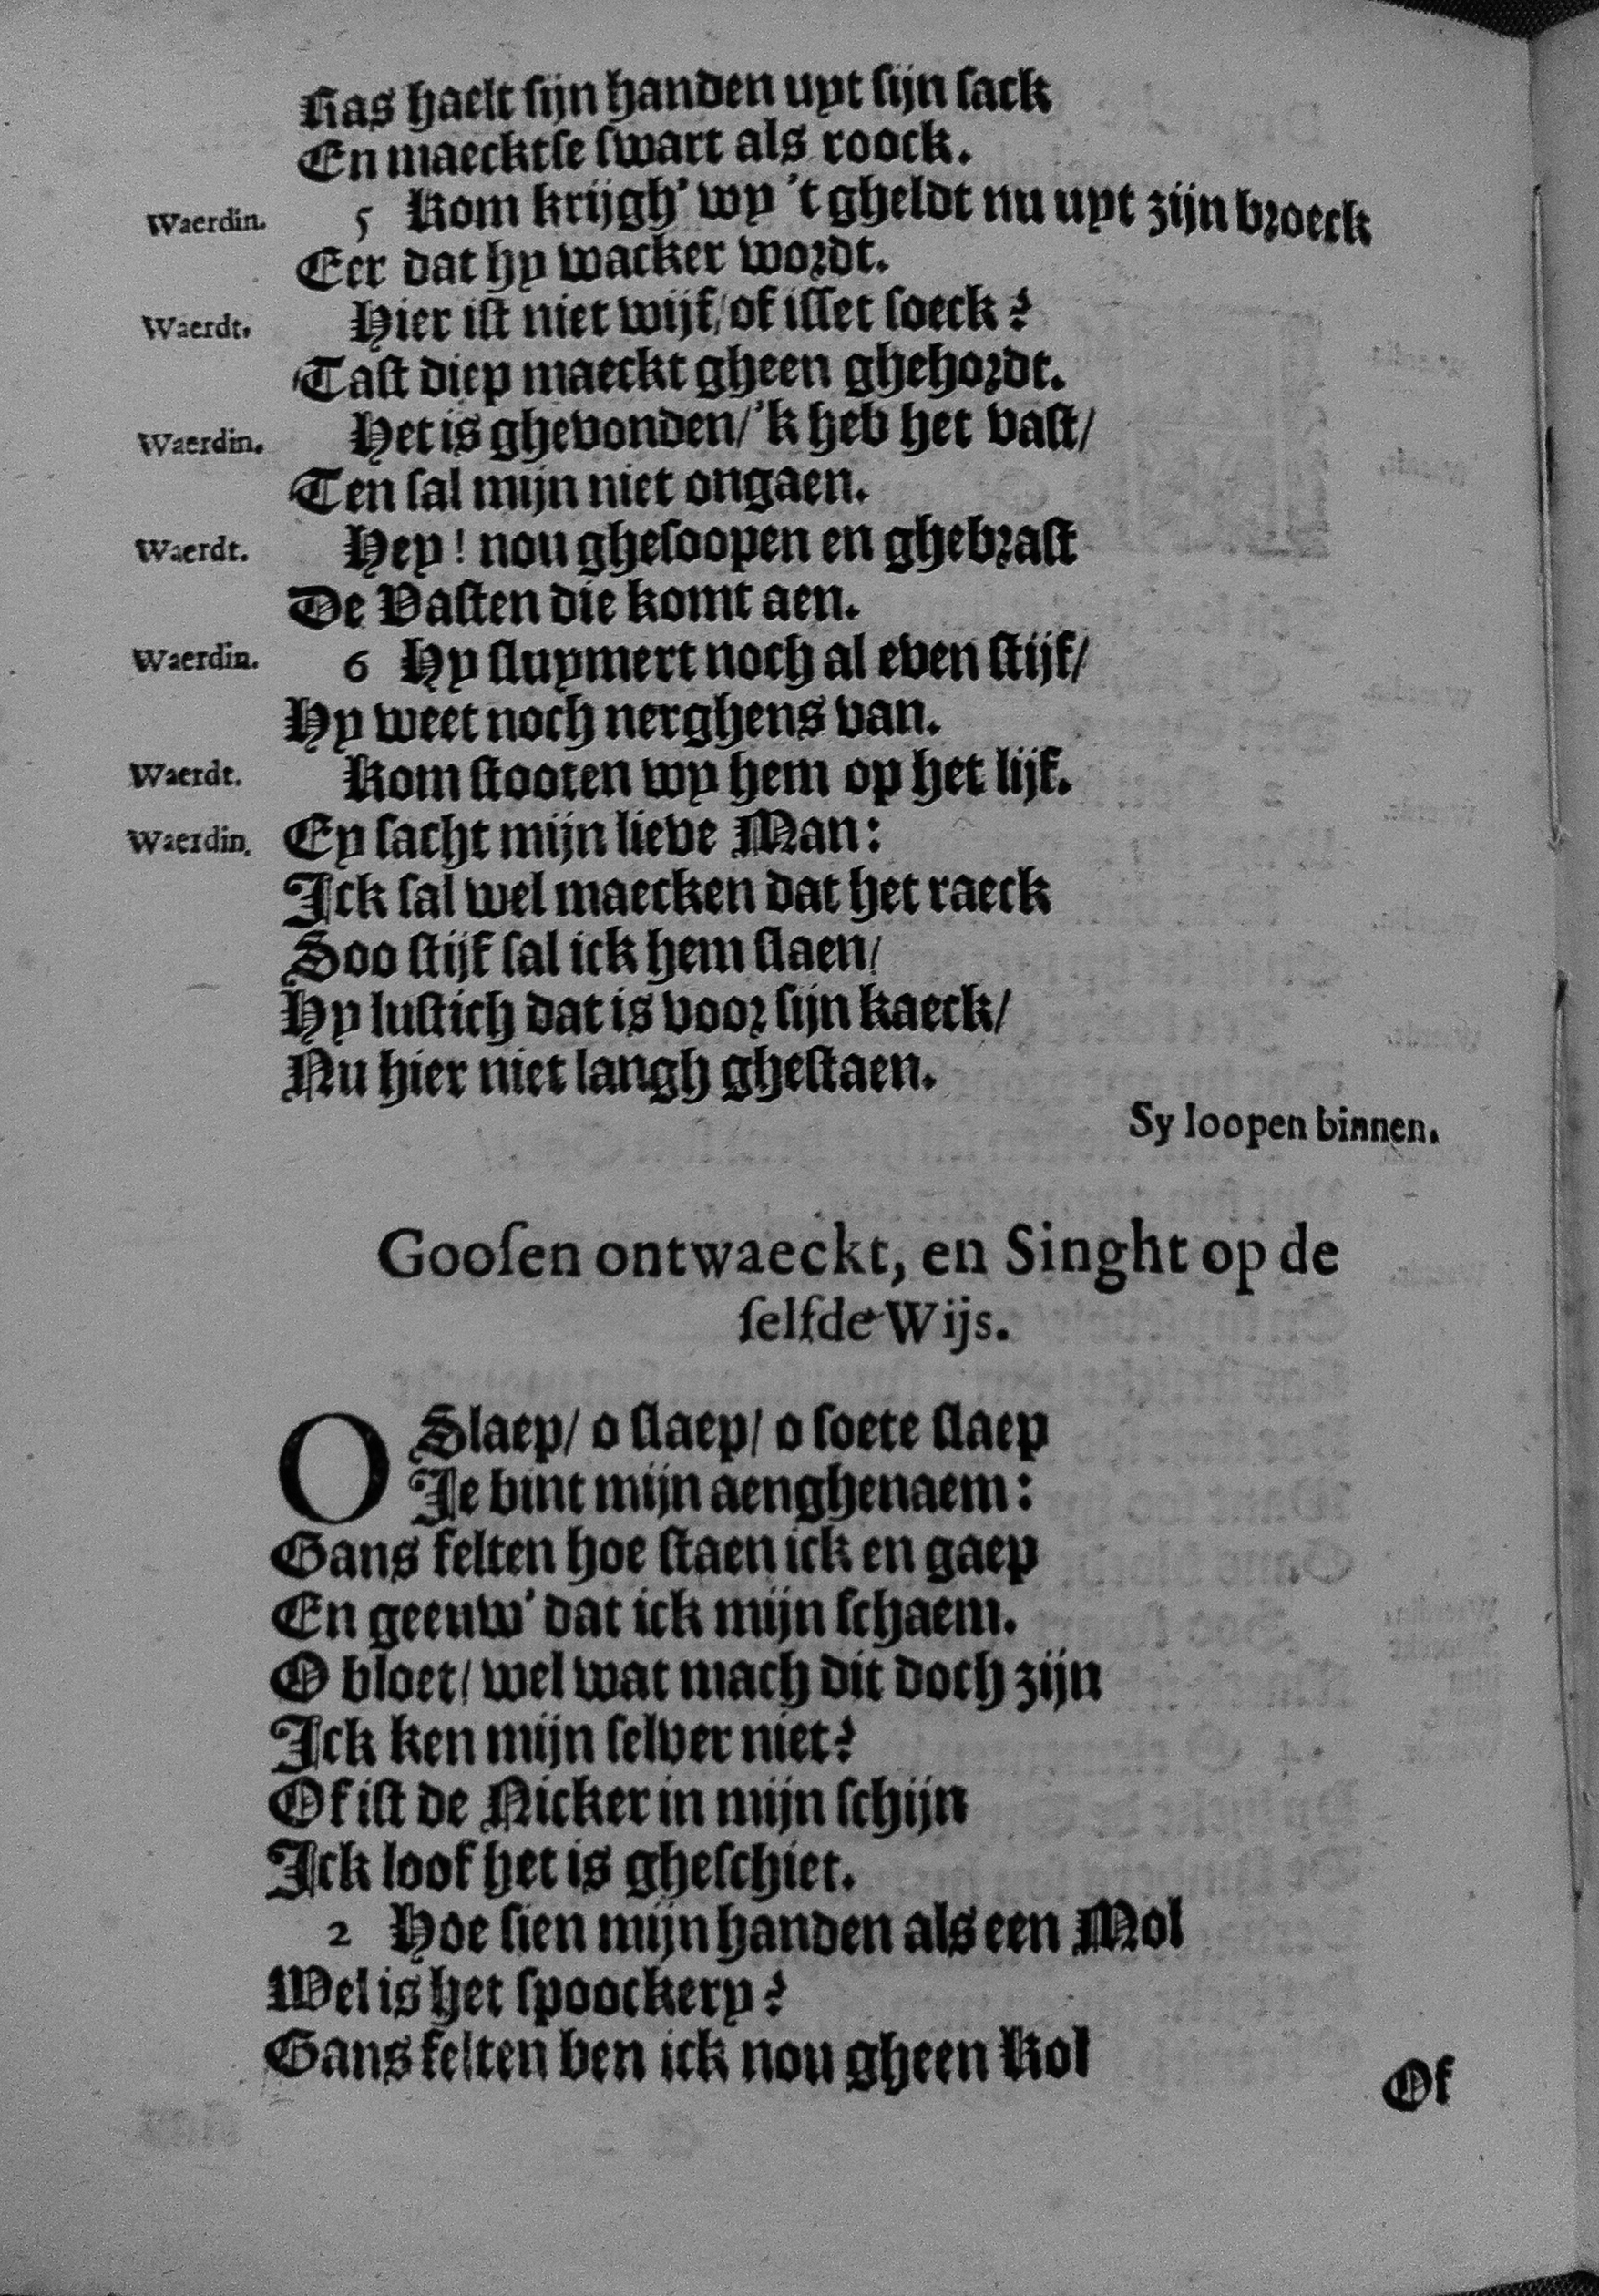 Ras haelt sijn handen uyt sijn sack
En maecktse swart als roock.
Waerdin. 5 Kom krijgh' wy 't gheldt nu uyt zijn broeck
Eer dat hy wacker wordt.
Waerdt. Hier ist niet wijf/ of isset soeck?
Tast diep maeckt gheen ghehordt.
Waerdin. Het is ghevonden/ 'k heb het vast/
Ten sal mijn niet ongaen.
Waerdt. Hey! nou ghesoopen en ghebrast
De Vasten die komt aen.
Waerdin. 6 Hy sluymert noch al even stijf/
Hy weet noch nerghens van.
Waerdt. Kom stooten wy hem op het lijf.
Waerdin. Ey sacht mijn lieve Man:
Ick sal wel maecken dat het raeck
Soo stijf sal ick hem slaen/
Hy lustich dat is voor sijn kaeck/
Nu hier niet langh ghestaen.
Sy loopen binnen.
Gooſen ontwaeckt, en Singht op de
ſelfde Wijs.
O Slaep/ o slaep/ o soete slaep
Je bint mijn aenghenaem:
Gans felten hoe staen ick en gaep
En geeuw' dat ick mijn schaem.
O bloet/ wel wat mach dit doch zijn
Ick ken mijn selver niet?
Of ist de Nicker in mijn schijn
Ick loof het is gheschiet.
2 Hoe sien mijn handen als een Mol
Wel is het spoockery?
Gans felten ben ick nou gheen Kol
Of